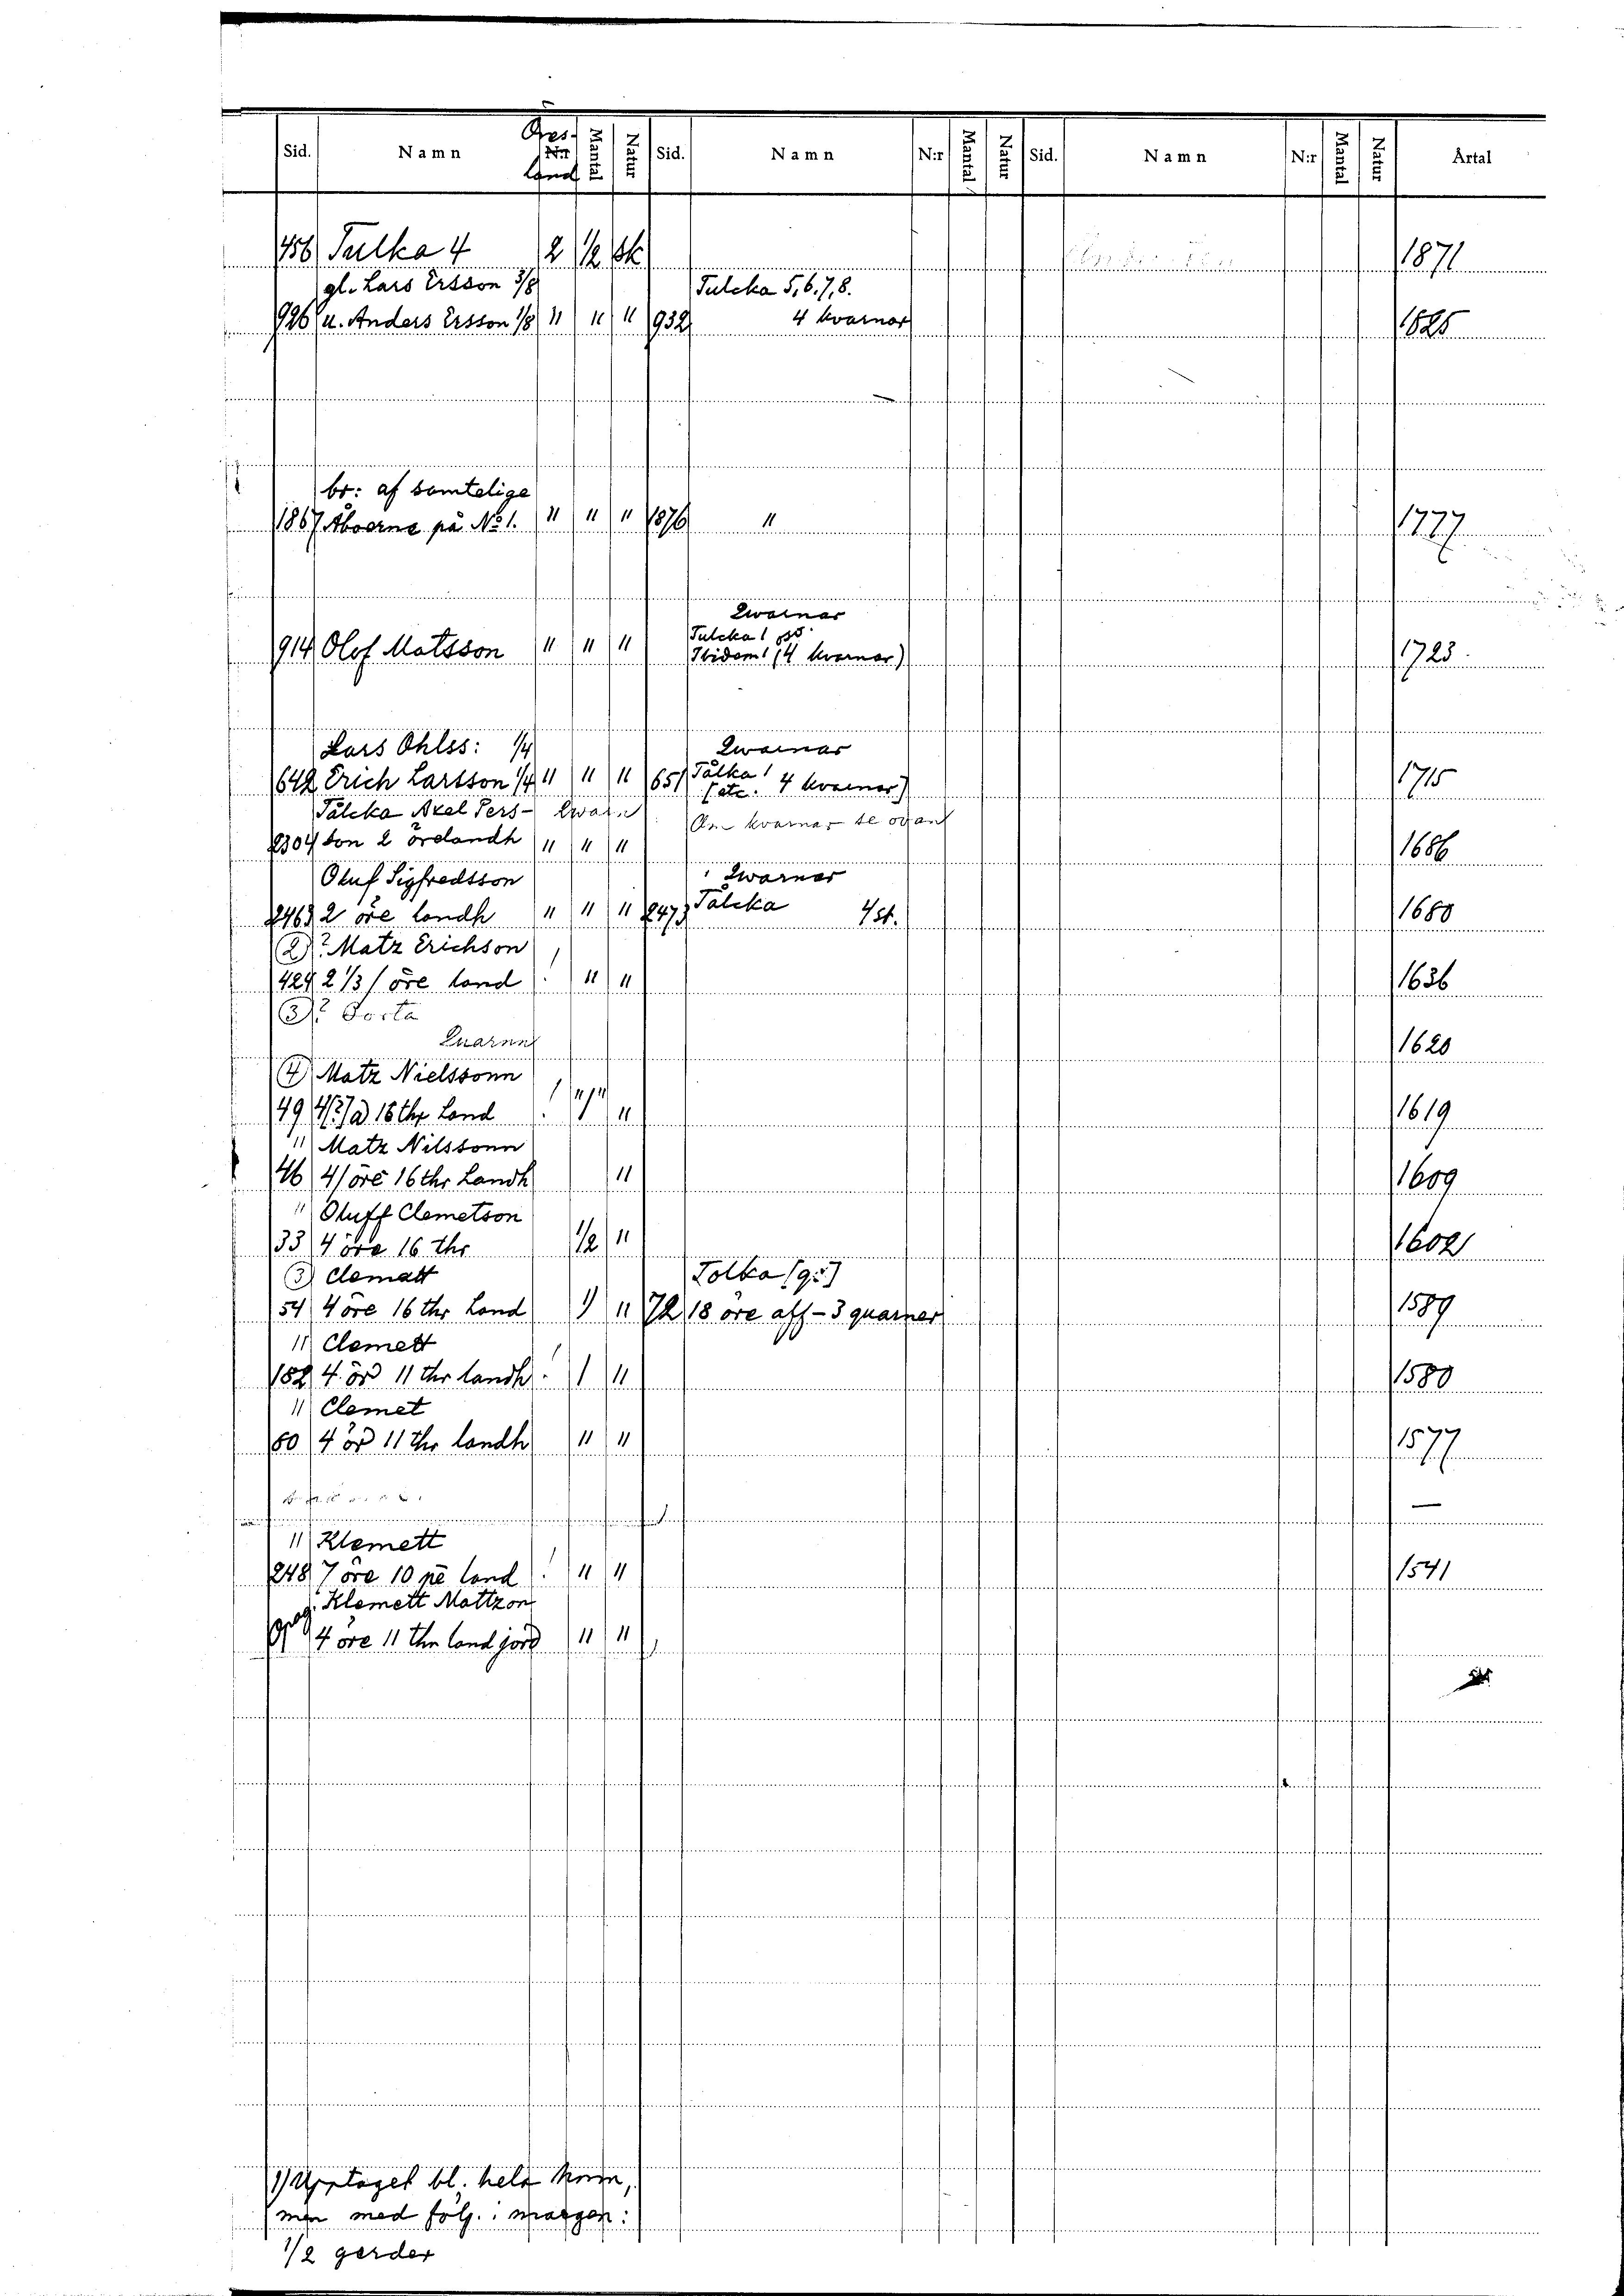 Sid. Namn Öres- N:r land Mantal Natur Sid. Namn N:r Mantal Natur Sid. Namn N:r Mantal Natur Årtal
456 Tulka 4 2 1/2 sk 1871
gl. Lars Ersson 3/8 Tulcka 5,6.7,8.
926 u. Anders Ersson 1/8 " " " 932 4 kvarnor 1825
br: af samtelige
1867 Åboerne på No 1. " " " 1876 " 1777
Qwarnar
914 Olof Matsson " " " Tulcka 1
Ibidem 1 (4 kvarnar) 1723
Lars Ohlss: 1/4 Qwarnar
642 Erich Larsson 1/4 " " " 651 Tålka 1 1715
[etc. 4 kvarnor]
Tålcka Axel Pers- Qwarn Om kvarnar se ovan
2304 son 2 örelandh " " " 1686
Oluf Sigfredsson Qwarnar
2463 2 öre landh " " " 2473 Tålcka 4 st. 1680
(2)? Matz Erichson
424 2 1/3 / öre land " " 1636
(3)?
Quarnn 1620
(4) Matz Nielssonn
49 4/?/ 16 thr Land " 1619
" Matz Nilssonn
46 4/ öre 16 thr Landh " 1609
" Oluff Clemetson
33 4 öre 16 thr 1/2 " 1602
(3) Clematt Tolka [qv.]
54 4 öre 16 thr Land 1) " 72 18 öre aff - 3 quarner 1589
" Clemett
182 4 ör 11 thr landh 1 " 1580
" Clemet
80 4 ör 11 thr landh " " 1577
—
" Klemett
248 7 öre 10 pē land " " 1541
Klemett Mattzon
4 öre 11 thr land jord " "
1) Upptaget bl. hela hem,
men med följ. i margen:
1/2 gerder